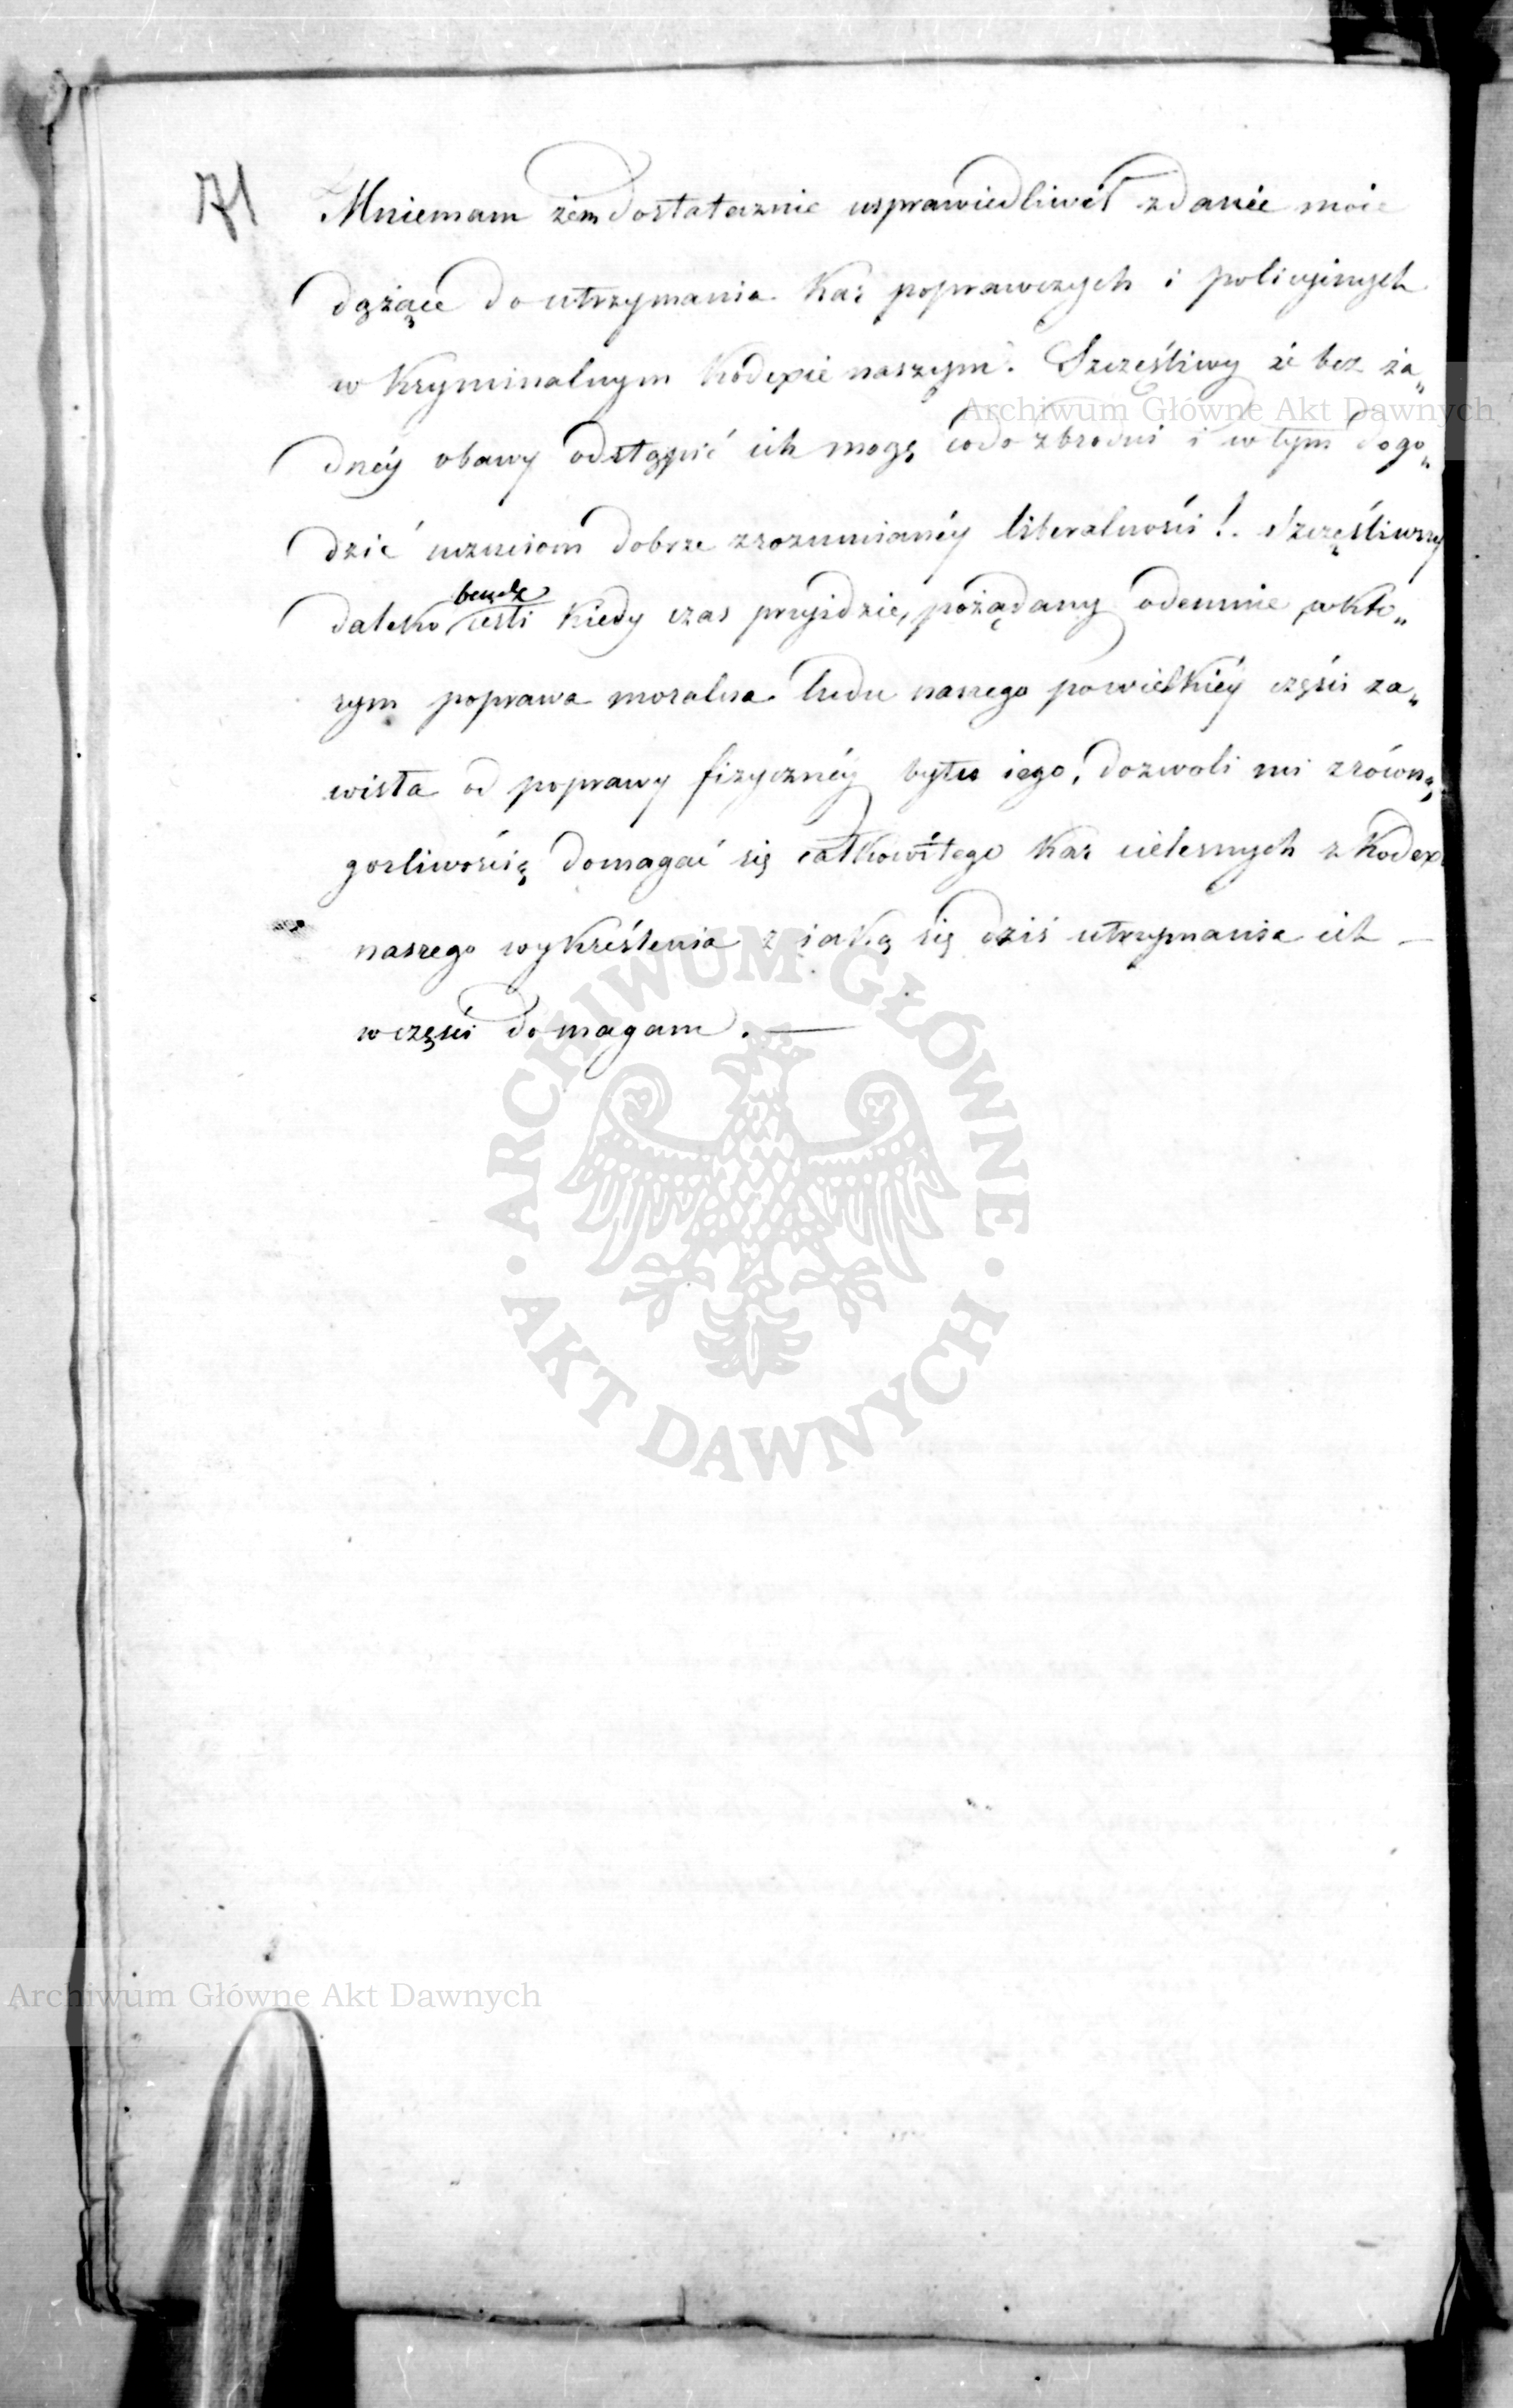 71
Mniemam żem dostatecznie usprawiedliwił zdanie moie
dążące do utrzymania kar poprawczych i policyinych
w kryminalnym kodexie naszym. Szczęśliwy że bez ża„
dnéy obawy odstąpić ich mogę codo zbrodni i w tym dogo„
dzić uczuciom dobrze zrozumianéy liberalności!. Szczęśliwszy
będę
daleko ieśli kiedy czas przyidzie, pożądany odemnie, w któ„
rym poprawa moralna ludu naszego powielkiéy części za„
wisła od poprawy fizycznéy bytu iego, dozwoli mi zrówną
gorliwością domagać się całkowitego kar cielesnych z kodexu
naszego wykreślenia z iaką się dziś utrzymania ich —
w części domagam. —
Archiwum Główne Akt Dawnych
ARCHIWUM GŁÓWNE
· AKT DAWNYCH ·
Archiwum Główne Akt Dawnych